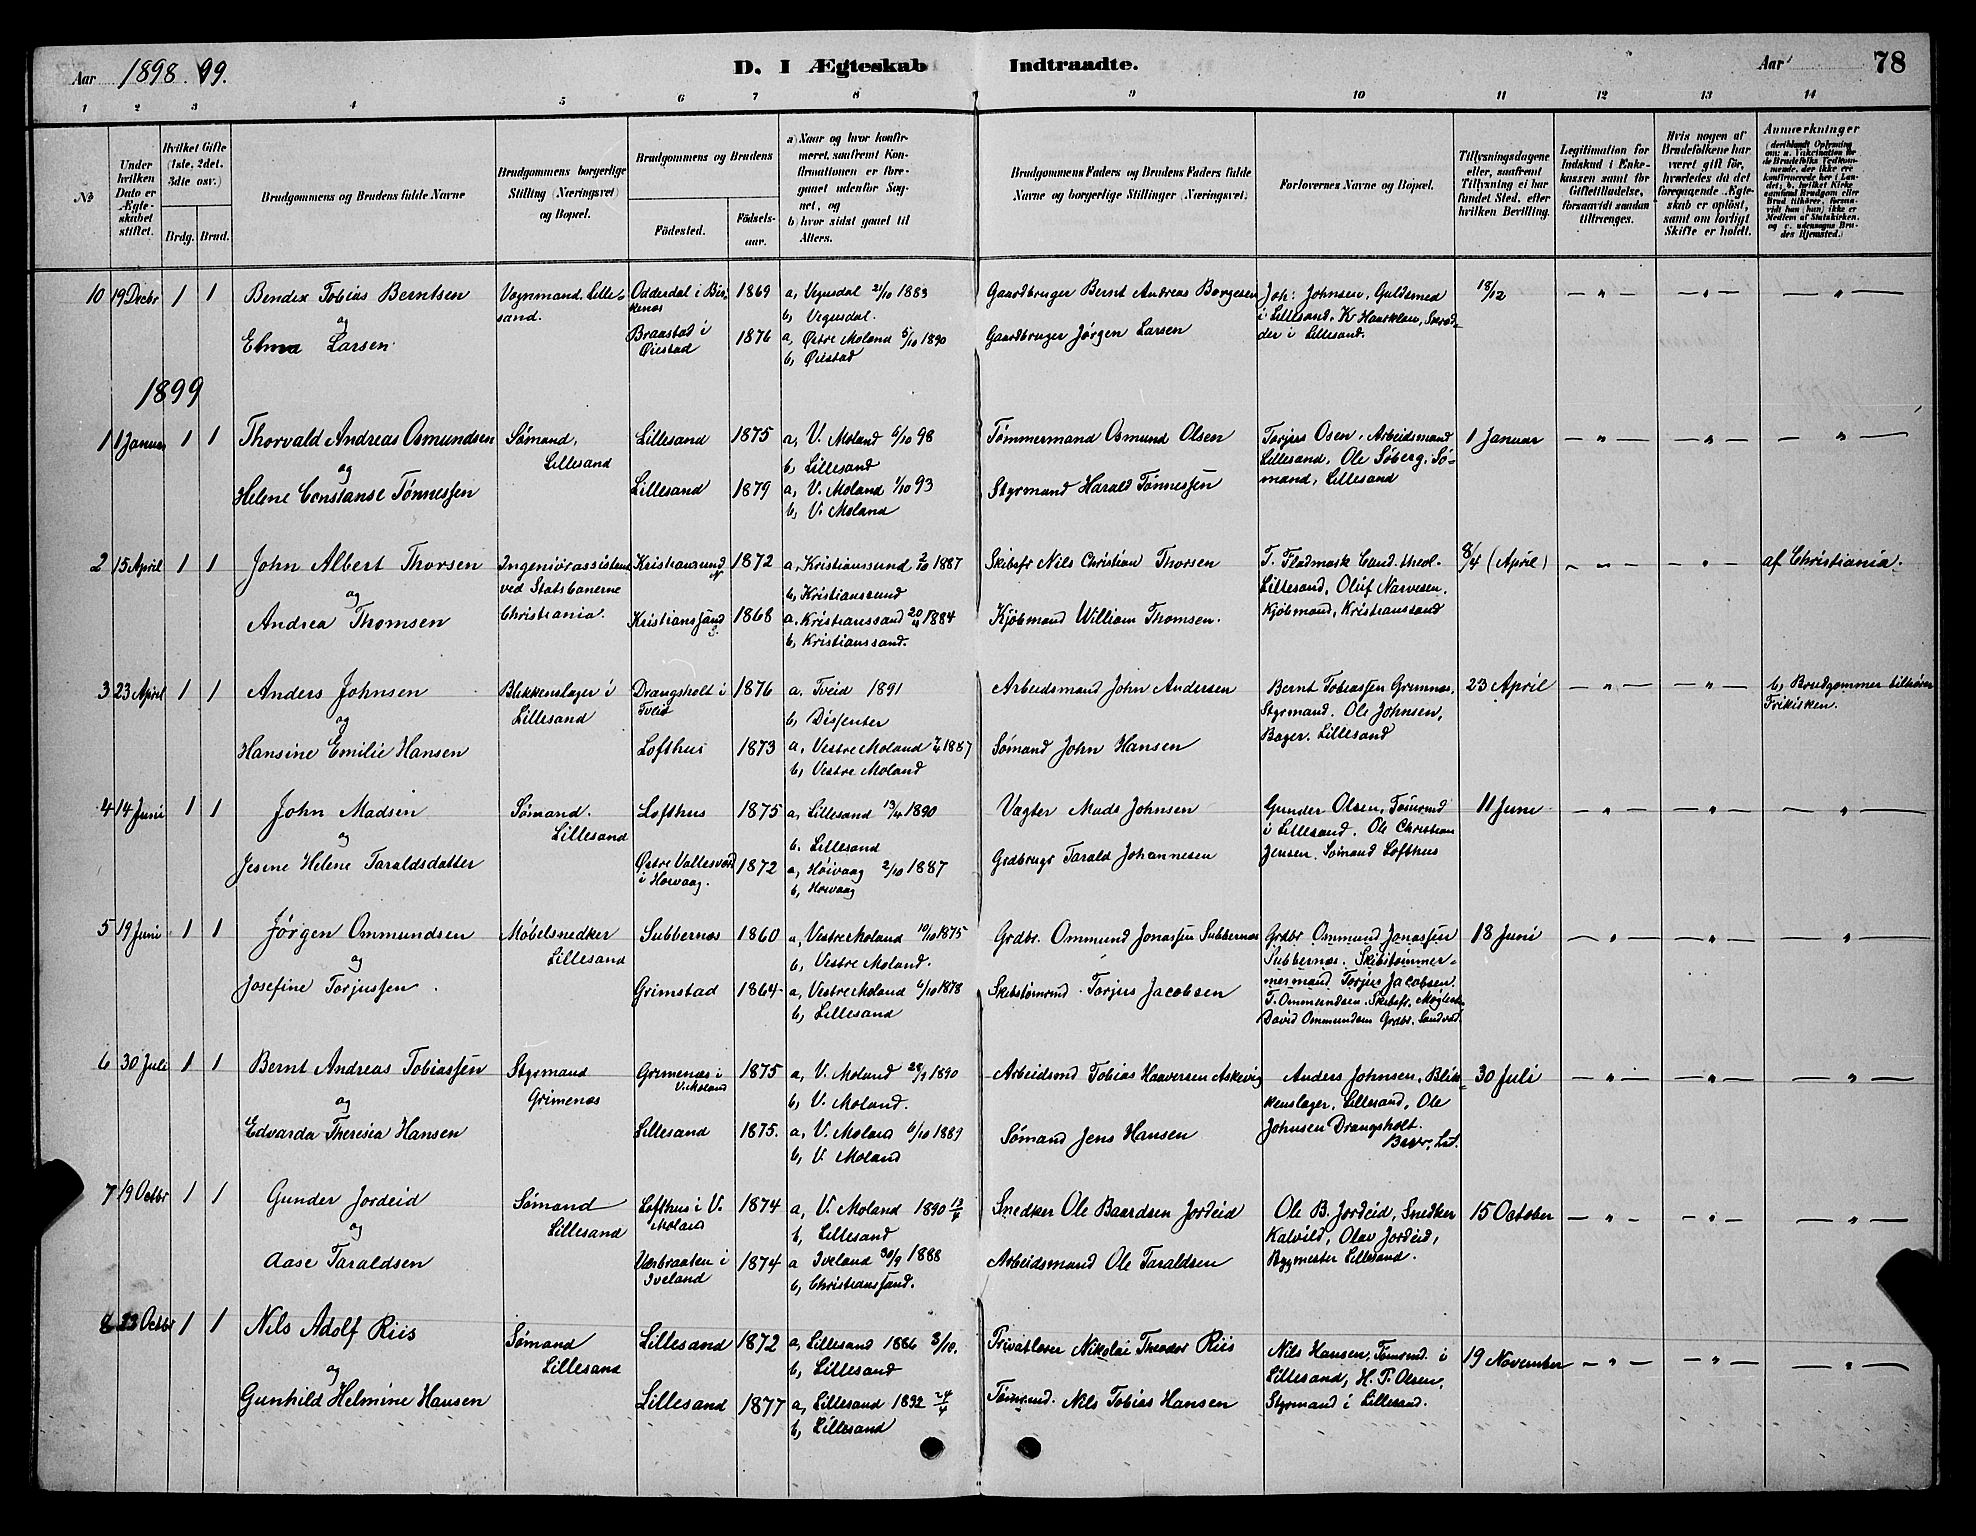 Aar 1898. 99.
D. I Ægteskab Indtraadte.
Aar 78
1 2 3 4 5 6 7 8 9 10 11 12 13 14
No
Under hvilken Dato er Ægteskabet stiftet.
Hvilket Gifte (1ste, 2det, 3die osv.)
Brdg. Brud.
Brudgommens og Brudens fulde Navne
Brudgommens borgerlige Stilling (Næringsvei) og Bopæl.
Brudgommens og Brudens
Födested.
Födselsaar.
a) Naar og hvor konfirmeret, saafremt Konfirmationen er foregaaet udenfor Sognet, og
b) hvor sidst gaaet til Alters.
Brudgommens Faders og Brudens Faders fulde Navne og borgerlige Stillinger (Næringsvei)
Forlovernes Navne og Bopæl.
Tillysningsdagene eller, saafremt Tillysning ei har fundet Sted, efter hvilken Bevilling.
Legitimation for Indskud i Enkekassen samt for Giftetilladelse, forsaavidt saadan tiltrænges.
Hvis nogen af Brudefolkene har været gift før, hvorledes da det foregaaende Ægteskab er oplöst, samt om lovligt Skifte er holdt.
Anmærkninger
10 19 Decbr 1 1 Bendix Tobias Berntsen
og
Elma Larsen
Vognmand. Lillesand.
Odderdal i Birkenæs 1869
Braastad i Øiestad 1876
a, Vegusdal 21/10 1883
b, Vegusdal.
a, Østre Moland 5/10 1890
b, Øiestad
Gaardbruger Bernt Andreas Borgesen
Gaardbruger Jørgen Larsen
Joh: Johnsen, Guldsmed
i Lillesand.
der i Lillesand.
18/12
1899
1 1 Januar 1 1 Thorvald Andreas Osmundsen
og
Helene Constanse Tønnessen
Sømand,
Lillesand
Lillesand 1875
Lillesand 1879
a, V. Moland 6/10 98
b, Lillesand
a, V. Moland 1/10 93
b, V. Moland
Tømmermand Osmund Olsen
Styrmand Harald Tønnessen
Torjus Osen, Arbeidsmand
Lillesand, Ole Söberg, Sømand, Lillesand
1 Januar
2 15 April 1 1 John Albert Thorsen
og
Andrea Thomsen
Ingeniörassistent
ved Statsbanerne
Christiania.
Kristiansund N 1872
Kristianssand S. 1868
a, Kristianssund 2/10 1887
b, Kristianssund
a, Kristianssand 20/4 1884
b, Kristianssand.
Skibsfr Nils Christian Thorsen
Kjöbmand William Thomsen.
T. Fladmark Cand. theol.
Lillesand, Oluf Narvesen.
Kjöbmand, Kristianssand
8/4 (April)
af Christiania.
3 23 April 1 1 Anders Johnsen
og
Hansine Emilie Hansen
Blikkenslager i
Lillesand
Drangsholt i
Tveid 1876
Lofthus 1873
a. Tveid 1891
b, Dissenter
a, Vestre Moland 2/10 1887
b, Vestre Moland
Arbeidsmand John Andersen
Sømand John Hansen
Bernt Tobiassen Grimnæs,
Styrmand. Ole Johnsen,
Bager. Lillesand
23 April
b, Brudgommen tilhører
Frikirken.
4 14 Juni 1 1 John Madsen
og
Jesine Helene Taraldsdatter
Sømand.
Lillesand
Lofthus 1875
Østre Vallesverd
i Høivaag. 1872
a, Lillesand 13/4 1890
b. Lillesand
a, Høivaag 2/10 1887
b, Høivaag
Vægter Mads Johnsen
Grdbrugr Tarald Johannesen
Gunder Olsen, Tømrmd
i Lillesand. Ole Christian
Jensen. Sømand Lofthus
11 Juni
5 19 Juni 1 1 Jørgen Ommundsen
og
Josefine Torjussen.
Møbelsnedker
Lillesand
Subbernæs 1860
Grimstad 1864
a, Vestre Moland 10/10 1875
b, Vestre Moland.
a, Vestre Moland 6/10 1878
b, Lillesand
Grdbr. Ommund Jonassen Subbernæs
Skibstømrmd. Torjus Jacobsen
Grdbr Ommund Jonassen
Subbernæs. Skibstømmermand Torjus Jacobsen.
T. Ommundsen. Skibsfr.
David Ommundsen Grdbr.
18 Juni
6 30 Juli 1 1 Bernt Andreas Tobiassen
og
Edvarda Theresia Hansen
Styrmand
Grimenæs
Grimenæs i
V. Moland 1875
Lillesand 1875.
a, V. Moland 28/9 1890
b, V. Moland.
a, V. Moland 6/10 1889
b, V. Moland
Arbeidsmd Tobias Haaversen Askevig
Sømand Jens Hansen
Anders Johnsen, Blikkenslager, Lillesand, Ole
Johnsen Drangsholt.
30 Juli
7 19 Octbr 1 1 Gunder Jordeid
og
Aase Taraldsen
Sømand
Lillesand
Lofthus i V.
Moland 1874
Værbraaten i
Iveland 1874
a, V. Moland 1890 13/4
b, Lillesand
a Iveland 30/9 1888
b, Christianssand.
Snedker Ole Baardsen Jordeid
Arbeidsmand Ole Taraldsen
Ole B. Jordeid, Snedker
Kalvild, Olav Jordeid,
Bygmester Lillesand.
15 October
8 23 Octbr 1 1 Nils Adolf Riis
og
Gunhild Helmine Hansen
Sømand
Lillesand
Lillesand 1872
Lillesand 1877
a, Lillesand 1886 3/10.
b, Lillesand
a, Lillesand 1892 24/4
b, Lillesand
Privatlærer Nikolai Theodor Riis
Tømrmd. Nils Tobias Hansen
Nils Hansen, Tømrmd. i
Lillesand, H. P. Olsen,
Styrmand i Lillesand.
19 November